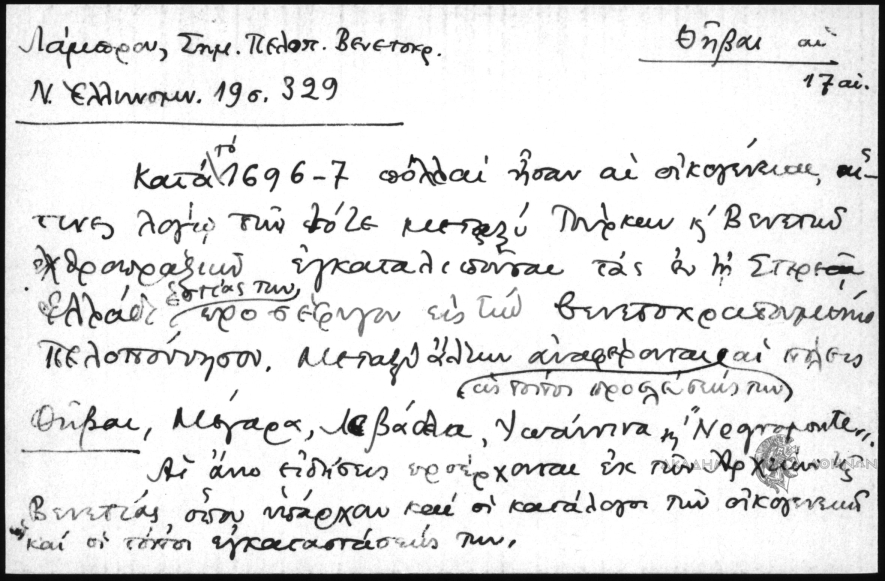 Λάμπρου, Σημ. Πελοπ. Βενετοκρ.
Θῆβαι αἱ
17 αἰ.
Ν. Ἑλληνομν. 19 σ. 329
Κατά τό 1696-7 πολλαί ἦσαν αἱ οἰκογένειαι, αἵ-
τινες λόγῳ τῶν τότε μεταξύ Τούρκων κ' Βενετῶν
ἐχθροπραξιῶν ἐγκαταλιποῦσαι τάς ἐν τῇ Στερεᾷ
Ἑλλάδι ἑστίας των, προσέφυγον εἰς τήν Βενετοκρατουμένην
Πελοπόννησον. Μεταξύ ἄλλων ἀναφέρονται καί πόλεις
(ὡς τόποι προελεύσεώς των)
Θῆβαι, Μέγαρα, Λεβάδεια, Ἰωάννινα κ' "Negroponte".
Αἱ ἄνω εἰδήσεις προέρχονται ἐκ τῶν Ἀρχείων τῆς
Βενετίας ὅπου ὑπάρχουν καί οἱ κατάλογοι τῶν οἰκογενειῶν
καί οἱ τόποι ἐγκαταστάσεώς των.